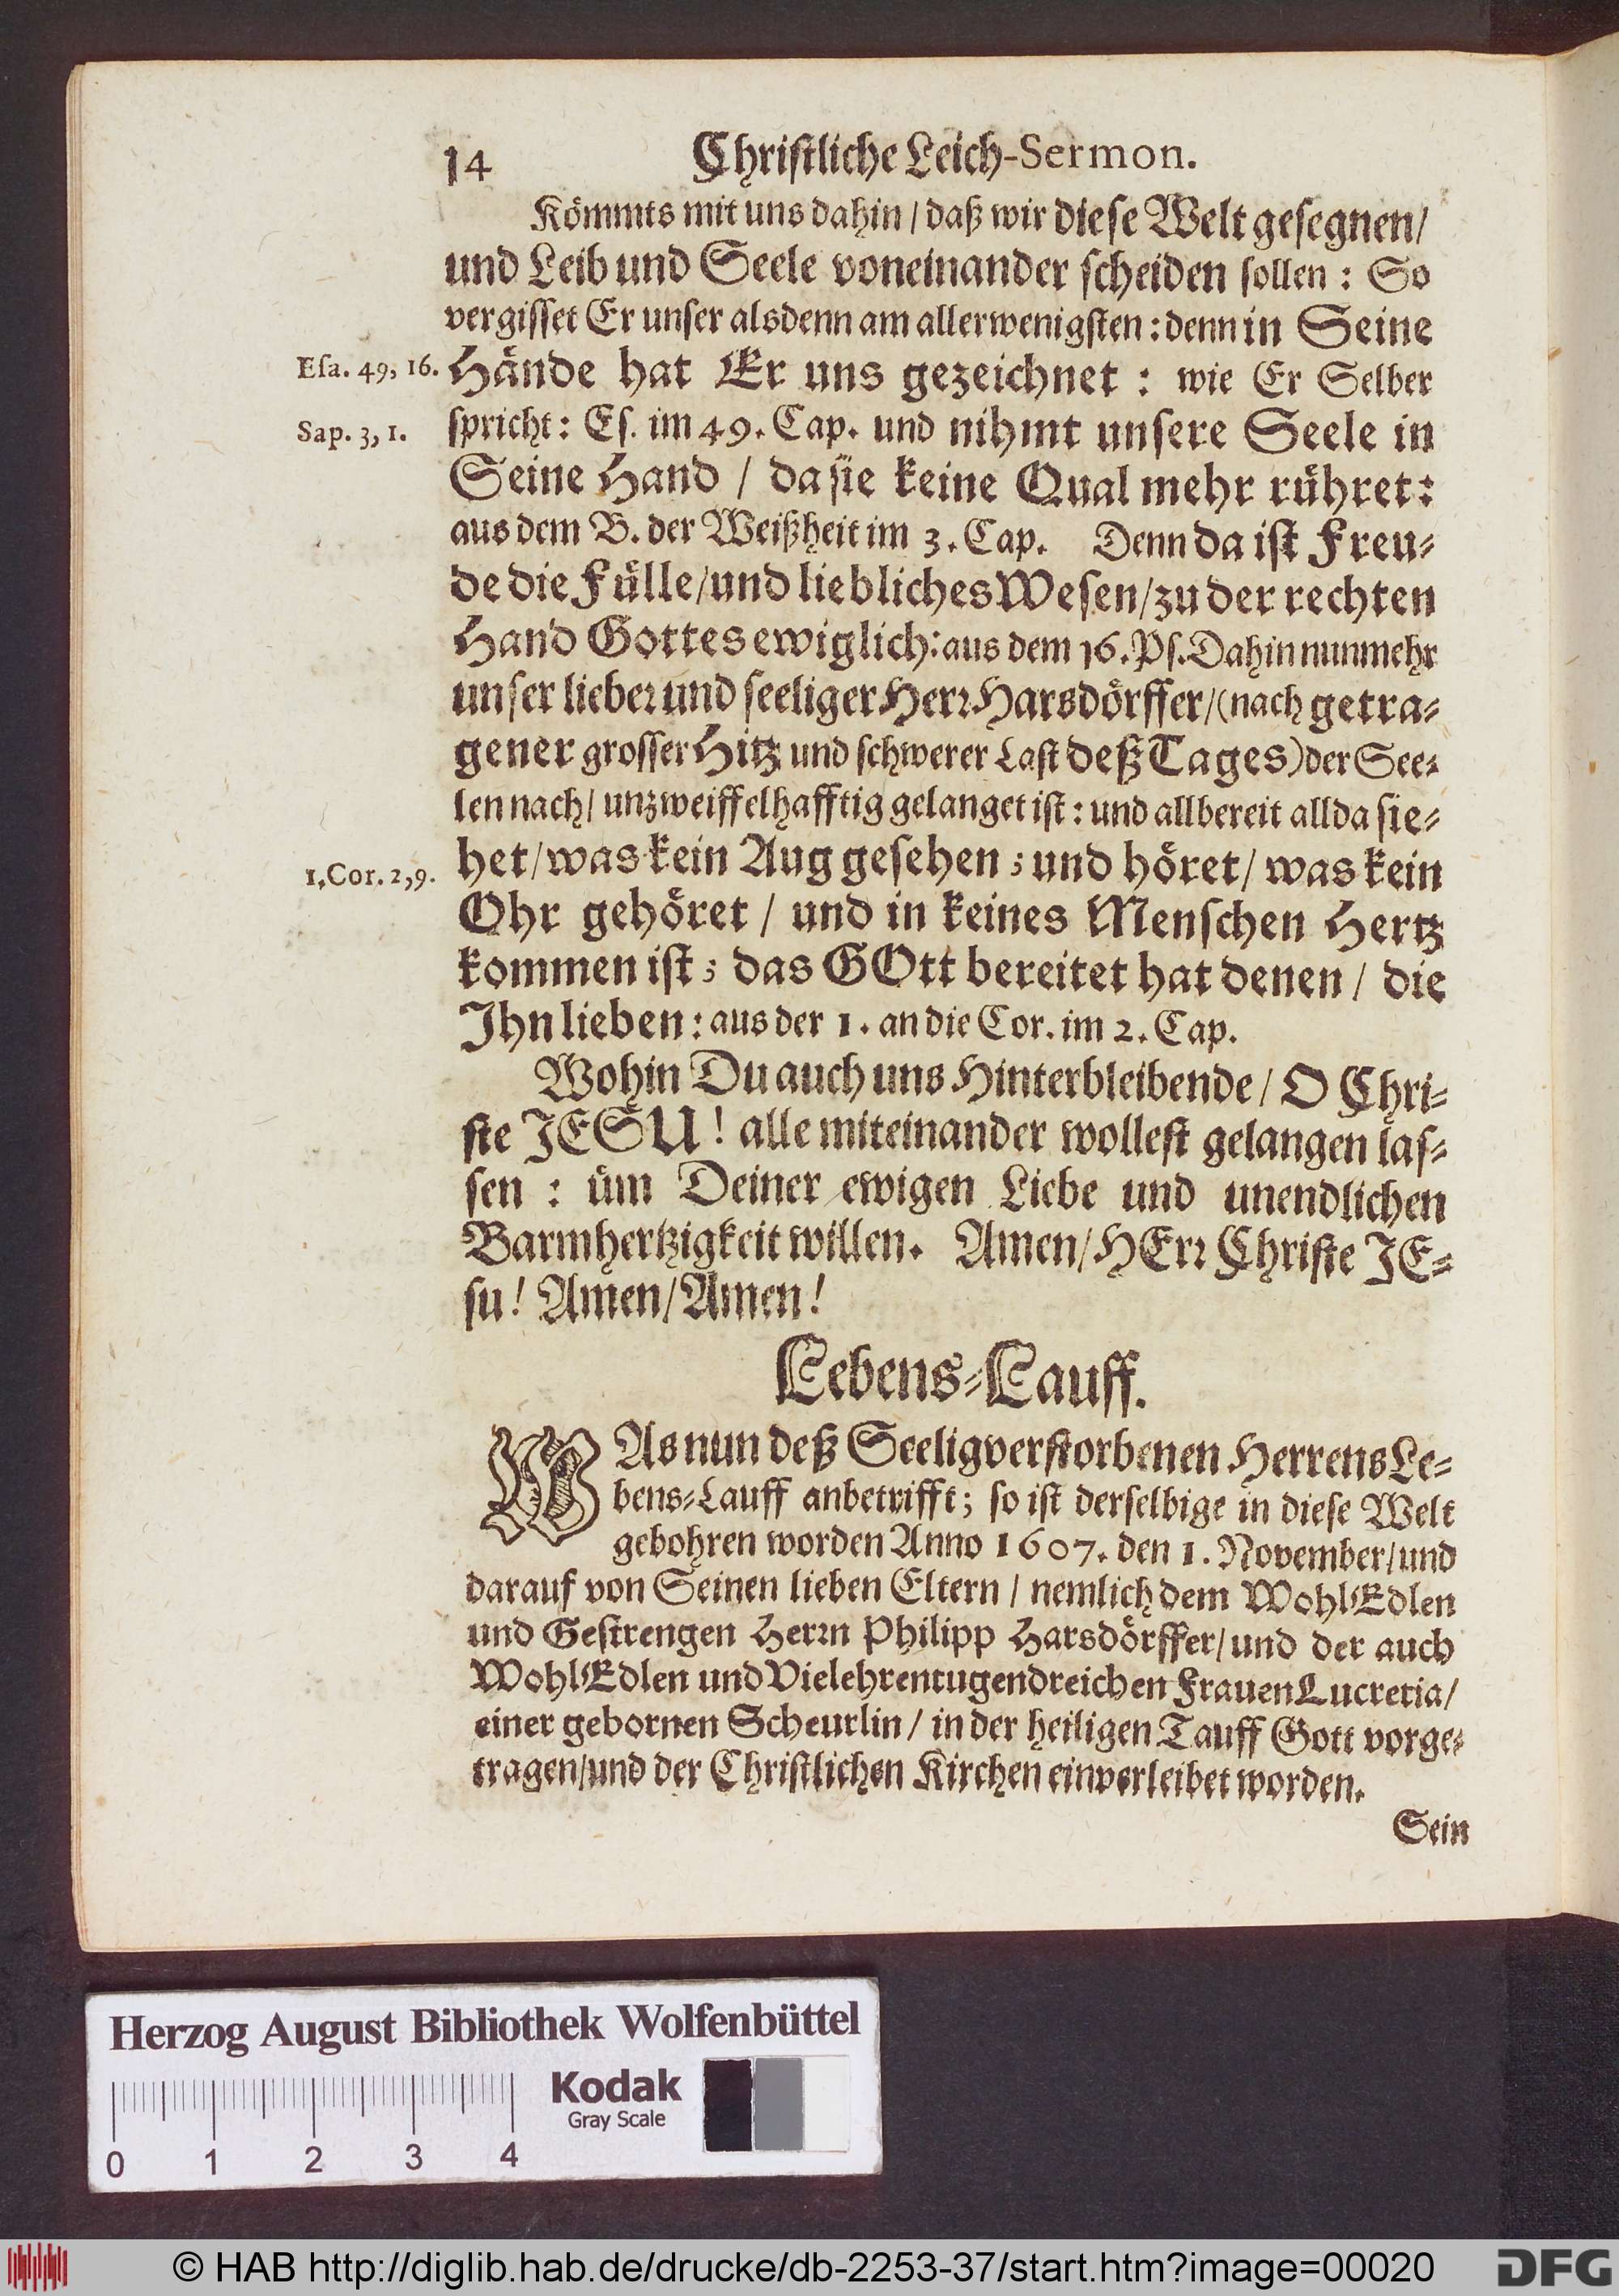 14 Christliche Leich-Sermon.
Kömmts mit uns dahin / daß wir diese Welt gesegnen/
und Leib und Seele voneinander scheiden sollen : So
vergisset Er unser alsdenn am allerwenigsten : denn in Seine
Esa. 49, 16.
Hände hat Er uns gezeichnet : wie Er Selber
Sap. 3, 1.
spricht: Es. im 49. Cap. und nihmt unsere Seele in
Seine Hand / da sie keine Qual mehr rühret:
aus dem B. der Weißheit im 3. Cap. Denn da ist Freu-
de die Fülle/und liebliches Wesen/zu der rechten
Hand Gottes ewiglich: aus dem 16. Ps. Dahin nunmehr
unser lieber und seeliger Herr Harsdörffer/(nach getra-
gener grosser Hitz und schwerer Last deß Tages) der See-
len nach/ unzweiffelhafftig gelanget ist : und allbereit allda sie-
1. Cor. 2, 9.
het/was kein Aug gesehen ; und höret/ was kein
Ohr gehöret / und in keines Menschen Hertz
kommen ist ; das GOtt bereitet hat denen / die
Ihn lieben : aus der 1. an die Cor. im 2. Cap.
Wohin Du auch uns Hinterbleibende/ O Chri-
ste JESU! alle miteinander wollest gelangen las-
sen : üm Deiner ewigen Liebe und unendlichen
Barmhertzigkeit willen. Amen/HErr Christe JE-
su! Amen/Amen!
Lebens-Lauff.
WAs nun deß Seeligverstorbenen Herrens Le-
bens-Lauff anbetrifft; so ist derselbige in diese Welt
gebohren worden Anno 1607. den 1. November/und
darauf von Seinen lieben Eltern / nemlich dem WohlEdlen
und Gestrengen Herrn Philipp Harsdörffer/und der auch
WohlEdlen und Vielehrentugendreichen Frauen Lucretia/
einer gebornen Scheurlin/ in der heiligen Tauff Gott vorge-
tragen/und der Christlichen Kirchen einverleibet worden.
Sein
Herzog August Bibliothek Wolfenbüttel
Kodak
Gray Scale
0 1 2 3 4
© HAB http://diglib.hab.de/drucke/db-2253-37/start.htm?image=00020
DFG